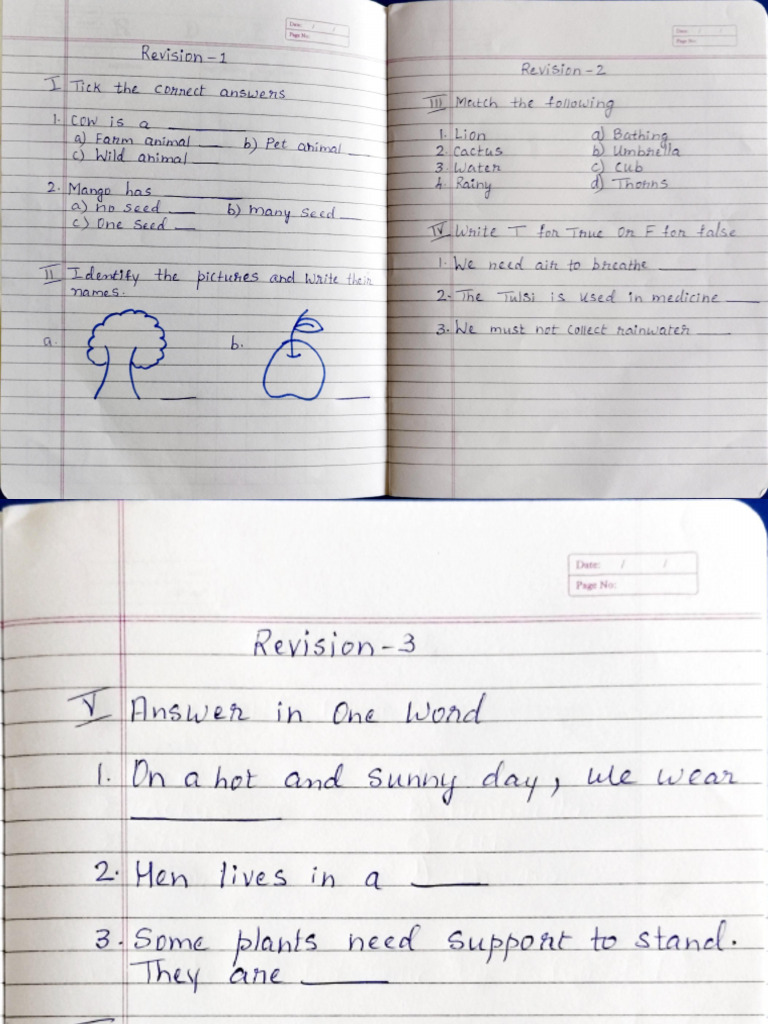 Date: / /
Page No:
Revision-1
I Tick the correct answers
1. Cow is a ____
a) Farm animal ____ b) Pet animal ____
c) Wild animal ____
2. Mango has ____
a) no seed ____ b) many seed ____
c) One seed ____
II Identify the pictures and write their
names.
a. ____ b. ____
Date: / /
Page No:
Revision-2
III Match the following
1. Lion a) Bathing
2. Cactus b) Umbrella
3. Water c) Cub
4. Rainy d) Thorns
IV Write T for True or F for false
1. We need air to breathe ____
2. The Tulsi is used in medicine ____
3. We must not collect rainwater ____
Date: / /
Page No:
Revision-3
V Answer in One Word
1. On a hot and sunny day, we wear
____
2. Hen lives in a ____
3. Some plants need support to stand.
They are ____